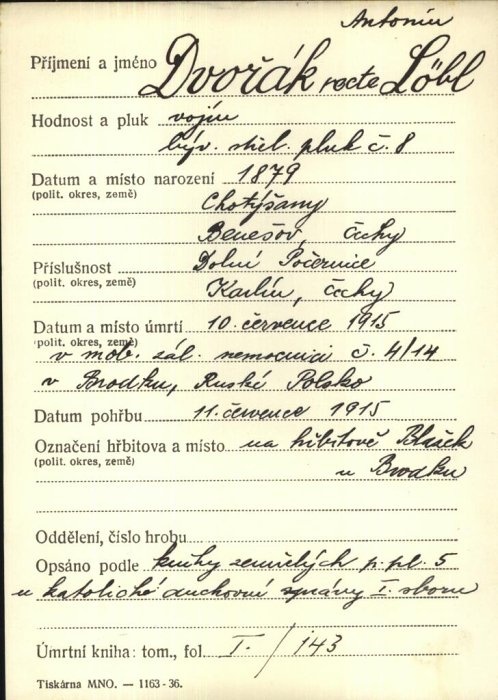 Antonín
Příjmení a jméno Dvořák recte Löbl
Hodnost a pluk vojín
býv. střel. pluk č. 8
Datum a místo narození 1879
(polit. okres, země) Chotýšany
Benešov, Čechy
Příslušnost Dolní Počernice
(polit. okres, země) Karlín, Čechy
Datum a místo úmrtí 10. července 1915
(polit. okres, země)
v mob. zál. nemocnici č. 4/14
v Brodku, Ruské Polsko
Datum pohřbu 11. července 1915
Označení hřbitova a místo na hřbitově
(polit. okres, země) u Brodku
Oddělení, číslo hrobu
Opsáno podle knihy zemřelých p. pl. 5
u katolické duchovní správy I. sboru
Úmrtní kniha: tom., fol. I. / 143
Tiskárna MNO. — 1163-36.